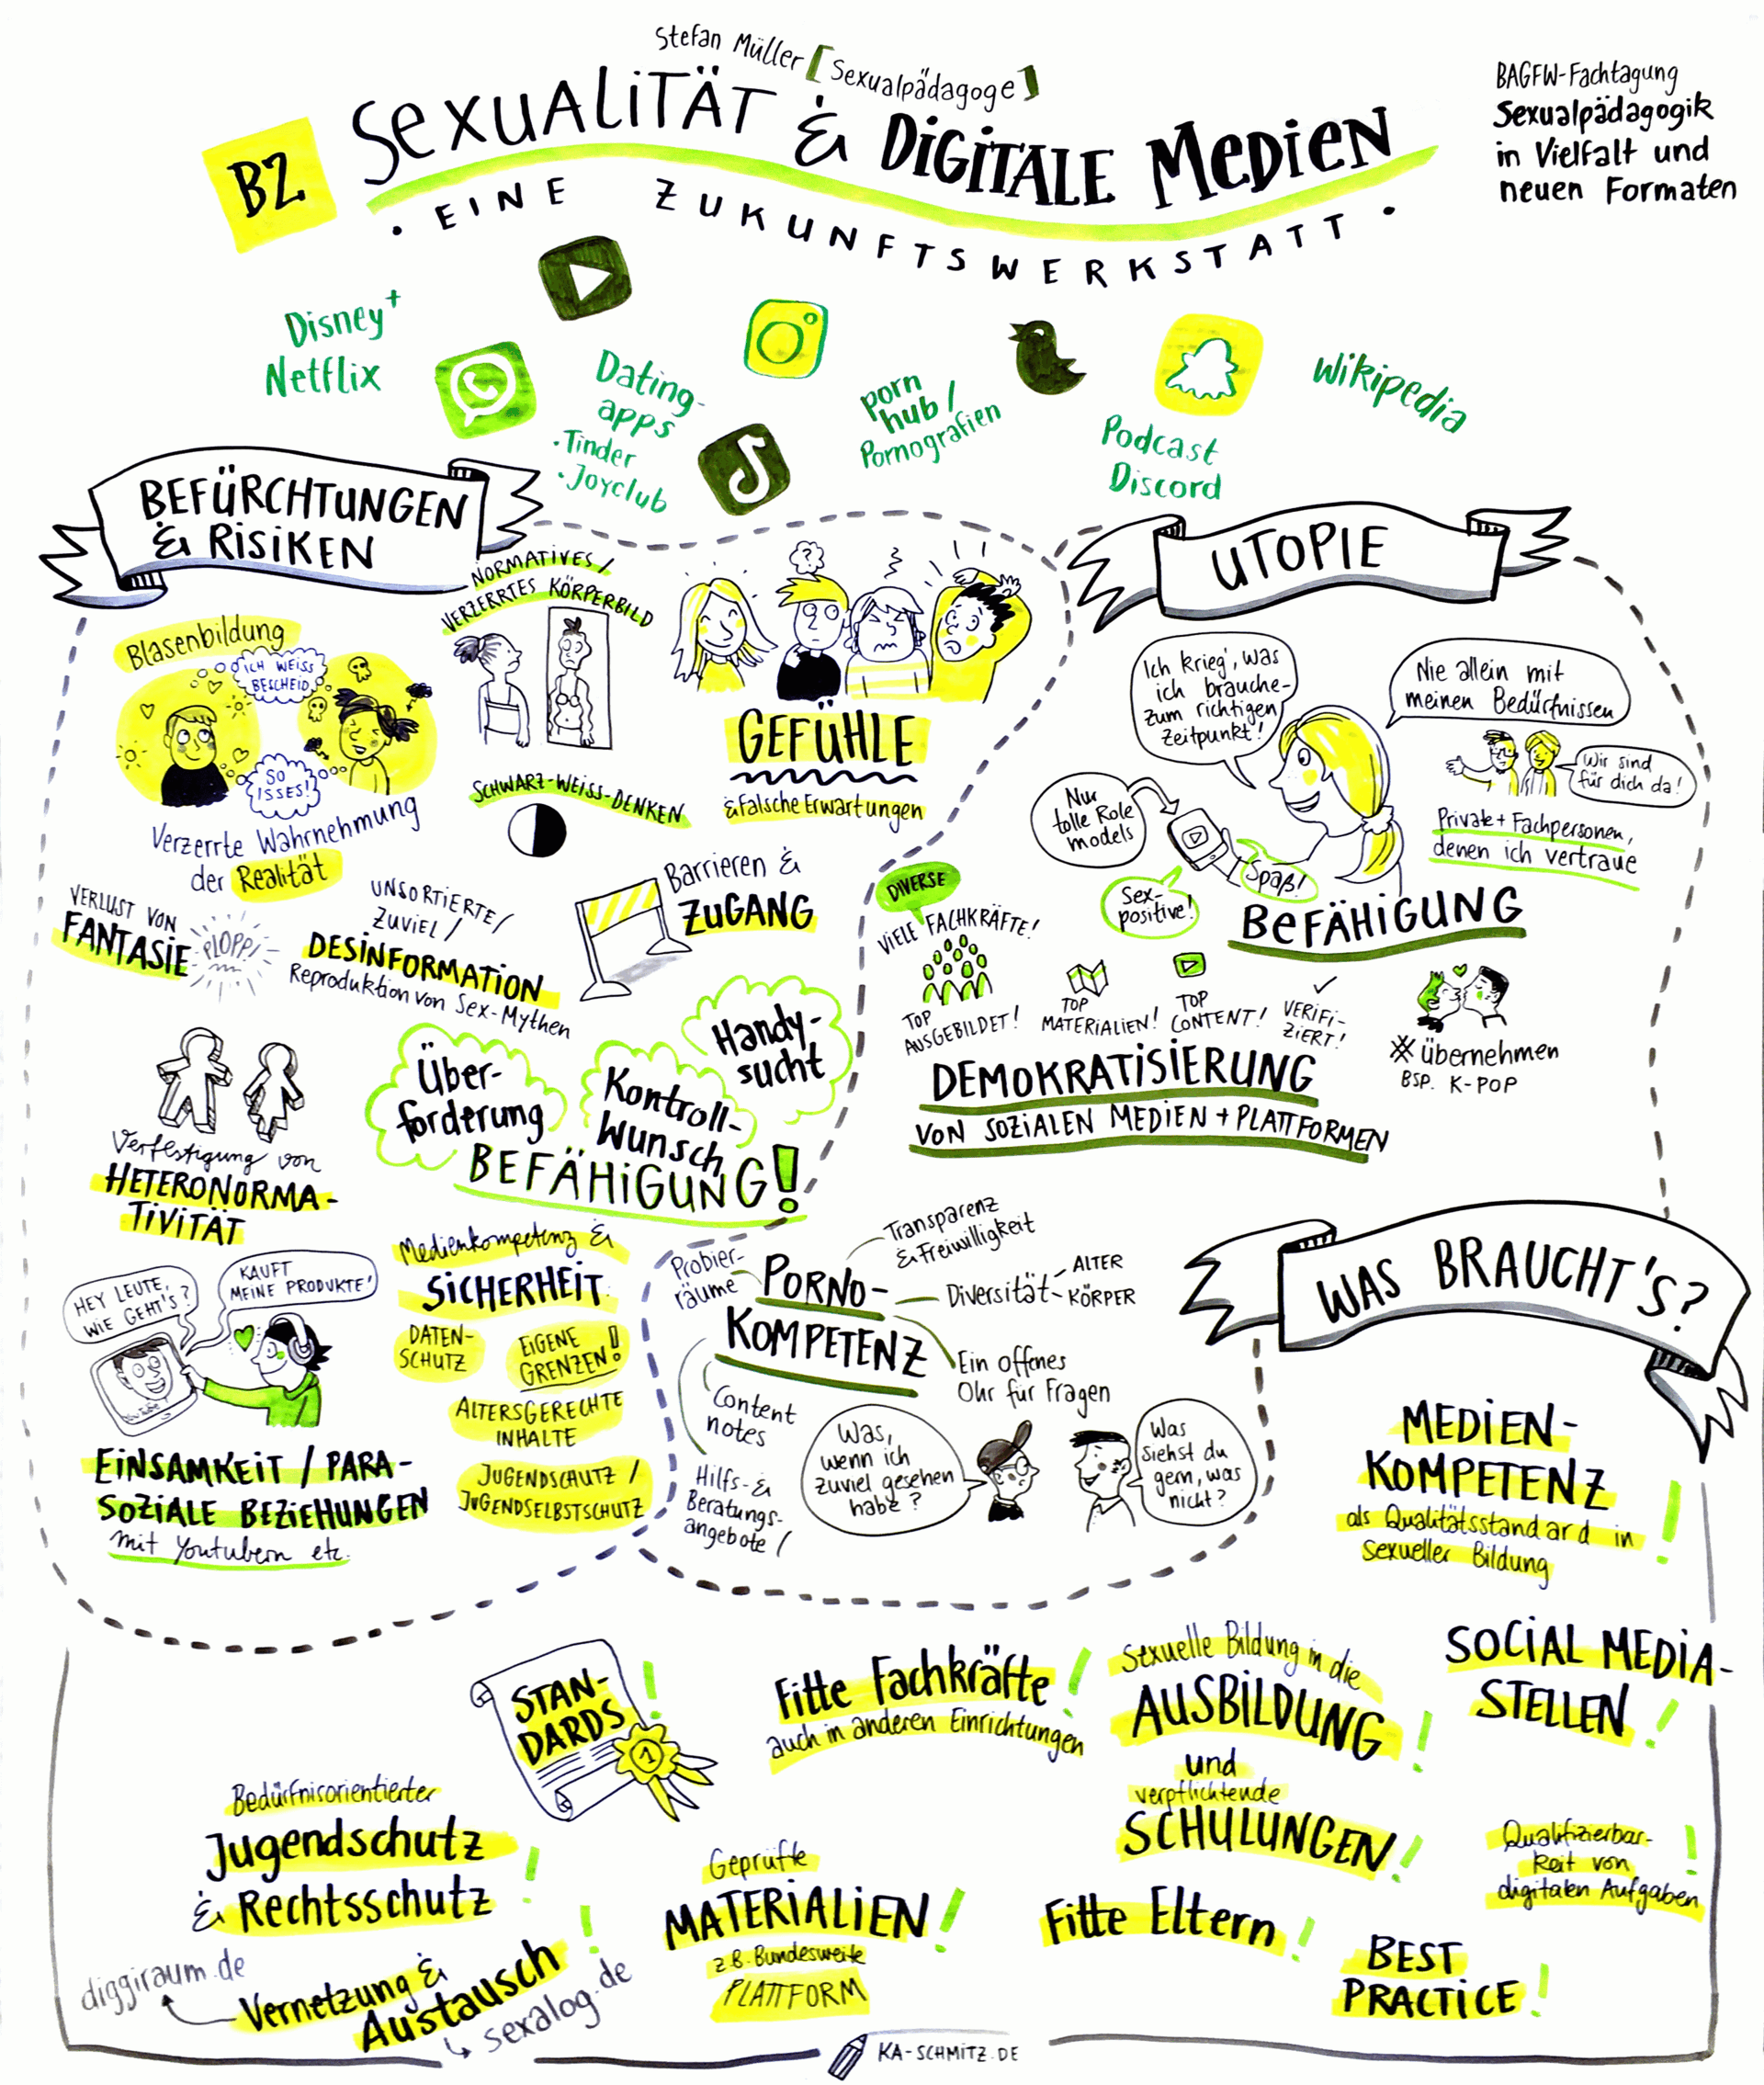 Stefan Müller [Sexualpädagoge]
B2
SEXUALITÄT & DIGITALE MEDIEN
· EINE ZUKUNFTSWERKSTATT ·
BAGFW-Fachtagung
Sexualpädagogik
in Vielfalt und
neuen Formaten
Disney+
Netflix
Dating-
apps
· Tinder
· Joyclub
porn
hub /
Pornografien
Podcast
Discord
Wikipedia
BEFÜRCHTUNGEN
& RISIKEN
Blasenbildung
ICH WEISS
BESCHEID
SO
ISSES!
Verzerrte Wahrnehmung
der Realität
NORMATIVES /
VERZERRTES KÖRPERBILD
SCHWARZ-WEISS-DENKEN
?
GEFÜHLE
& falsche Erwartungen
VERLUST VON
FANTASIE
PLOPP!
UNSORTIERTE /
ZUVIEL /
DESINFORMATION
Reproduktion von Sex-Mythen
Barrieren &
ZUGANG
Verfestigung von
HETERONORMA-
TIVITÄT
Über-
forderung
Kontroll-
Wunsch
Handy-
sucht
BEFÄHIGUNG!
HEY LEUTE,
WIE GEHT'S?
KAUFT
MEINE PRODUKTE!
YouTube
EINSAMKEIT / PARA-
SOZIALE BEZIEHUNGEN
mit Youtubern etc.
Medienkompetenz &
SICHERHEIT:
DATEN-
SCHUTZ
EIGENE
GRENZEN!
ALTERSGERECHTE
INHALTE
JUGENDSCHUTZ /
JUGENDSELBSTSCHUTZ
UTOPIE
Ich krieg', was
ich brauche-
zum richtigen
Zeitpunkt!
Nie allein mit
meinen Bedürfnissen
Wir sind
für dich da!
Private + Fachpersonen,
denen ich vertraue
Nur
tolle Role
models
Sex-
positive!
Spaß!
BEFÄHIGUNG
DIVERSE
VIELE FACHKRÄFTE!
TOP
AUSGEBILDET!
TOP
MATERIALIEN!
TOP
CONTENT!
VERIFI-
ZIERT!
# übernehmen
BSP. K-POP
DEMOKRATISIERUNG
VON SOZIALEN MEDIEN + PLATTFORMEN
Probier-
räume
PORNO-
KOMPETENZ
Transparenz
& Freiwilligkeit
Diversität
ALTER
KÖRPER
Ein offenes
Ohr für Fragen
Content
notes
Hilfs- &
Beratungs-
angebote /
Was,
wenn ich
zuviel gesehen
habe?
Was
siehst du
gern, was
nicht?
WAS BRAUCHT'S?
MEDIEN-
KOMPETENZ!
als Qualitätsstandard in
sexueller Bildung
SOCIAL MEDIA-
STELLEN!
STAN-
DARDS!
1
Fitte Fachkräfte!
auch in anderen Einrichtungen
Sexuelle Bildung in die
AUSBILDUNG!
und
verpflichtende
SCHULUNGEN!
Bedürfnisorientierter
Jugendschutz
& Rechtsschutz!
Geprüfte
MATERIALIEN!
z.B. Bundesweite
PLATTFORM
Fitte Eltern!
Qualifizierbar-
keit von
digitalen Aufgaben!
BEST
PRACTICE!
diggiraum.de
Vernetzung &
Austausch!
sexalog.de
KA-SCHMITZ.DE